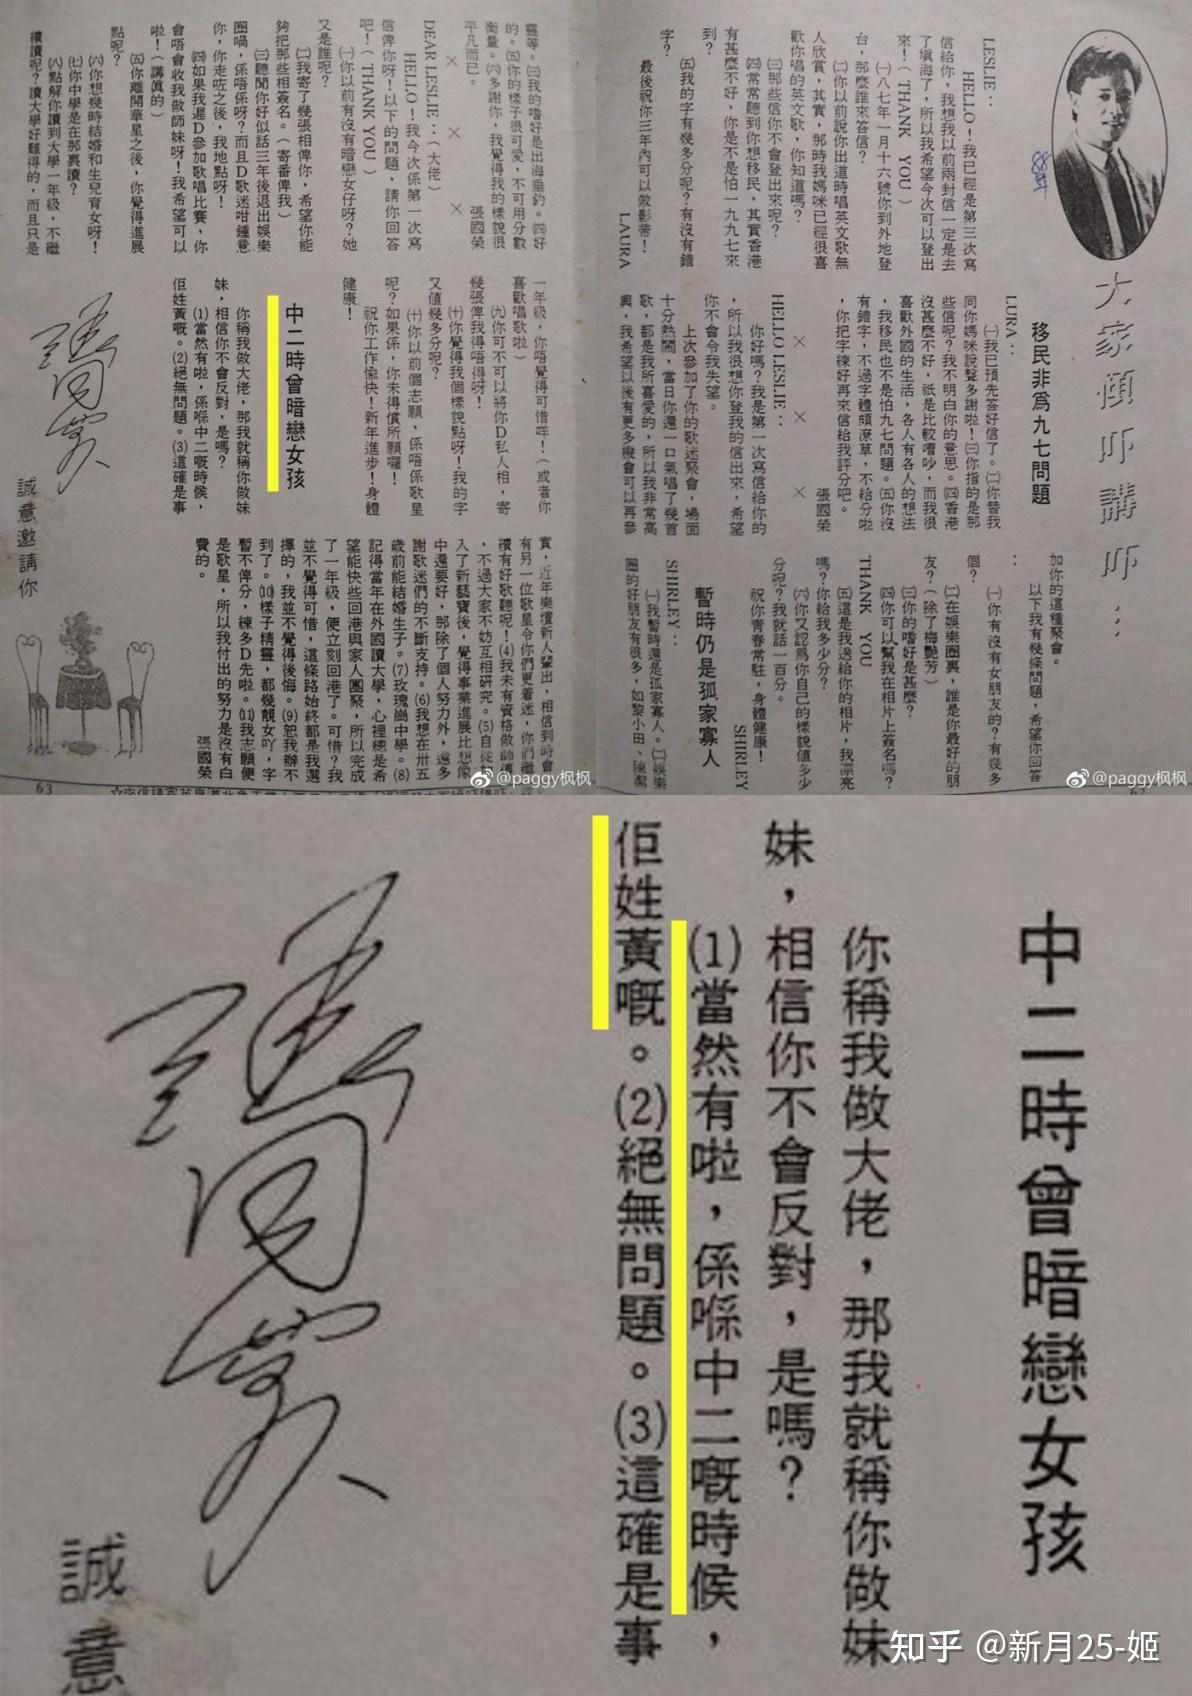 大家傾吓講吓：
LESLIE：
HELLO！我已經是第三次寫
信給你，我想我以前兩封信一定是去
了塡海了，所以我希望今次可以登出
來！（THANK YOU）
㈠八七年一月十六號你到外地登
台，那麼誰來答信？
㈡你以前說你出道時唱英文歌無
人欣賞，其實，那時我媽咪已經很喜
歡你唱的英文歌，你知道嗎？
㈢那些信你不會登出來呢？
㈣常常聽到你想移民，其實香港
有甚麼不好，你是不是怕一九九七來
到？
㈤我的字有幾多分呢？有沒有錯
字？
最後祝你三年內可以做影帝！
LAURA
移民非爲九七問題
LURA：
㈠我已預先答好信了。㈡你替我
同你媽咪說聲多謝啦！㈢你指的是那
些信呢？我不明白你的意思。㈣香港
沒甚麼不好，祇是比較嘈吵，而我很
喜歡外國的生活，各人有各人的想法
，我移民也不是怕九七問題。㈤你沒
有錯字，不過字體頗潦草，不給分啦
，你把字練好再來信給我評分吧。
張國榮
× × ×
HELLO LESLIE：
你好嗎？我是第一次寫信給你的
，所以我很想你登我的信出來，希望
你不會令我失望。
上次參加了你的歌迷聚會，場面
十分熱鬧，當日你還一口氣唱了幾首
歌，都是我所喜愛的，所以我非常高
興，我希望以後有更多機會可以再參
加你的這種聚會。
以下我有幾條問題，希望你回答
：
㈠你有沒有女朋友的？有幾多
個？
㈡在娛樂圈裏，誰是你最好的朋
友？（除了梅艷芳）
㈢你的嗜好是甚麼？
㈣你可以幫我在相片上簽名嗎？
THANK YOU
㈤這是我送給你的相片，我漂亮
嗎？你給我多少分？
㈥你又認爲你自己的樣貌值多少
分呢？我就話一百分。
祝你靑春常駐，身體健康！
SHIRLEY
暫時仍是孤家寡人
SHIRLEY：
㈠我暫時還是孤家寡人。㈡娛樂
圈的好朋友有很多，如黎小田、陳潔
@paggy枫枫
靈等。㈢我的嗜好是出海垂釣。㈣好
的。㈤你的樣子很可愛，不可用分數
衡量。㈥多謝你，我覺得我的樣貌很
平凡而已。
張國榮
× × ×
DEAR LESLIE：（大佬）
HELLO！我今次係第一次寫
信俾你呀！以下的問題，請你回答
吧！（THANK YOU）
㈠你以前有沒有暗戀女仔呀？她
又是誰呢？
㈡我寄了幾張相俾你，希望你能
夠把那些相簽名。（寄番俾我）
㈢聽聞你好似話三年後退出娛樂
圈喎，係唔係呀？而且Ｄ歌迷咁鍾意
你，你走咗之後，我地點呀！
㈣如果我遲Ｄ參加歌唱比賽，你
會唔會收我做師妹呀！我希望可以
啦！（講眞的）
㈤你離開華星之後，你覺得進展
點呢？
㈥你想幾時結婚和生兒育女呀！
㈦你中學是在那裏讀？
㈧點解你讀到大學一年級，不繼
續讀呢？讀大學好難得的，而且只是
一年級，你唔覺得可惜咩！（或者你
喜歡唱歌啦）
㈨你可不可以將你Ｄ私人相，寄
幾張俾我得唔得呀！
㈩你覺得我個樣貌點呀！我的字
又値幾多分呢？
㈩你以前個志願，係唔係歌星
呢？如果係，你未得償所願囉！
祝你工作愉快！新年進步！身體
健康！
中二時曾暗戀女孩
你稱我做大佬，那我就稱你做妹
妹，相信你不會反對，是嗎？
⑴當然有啦，係喺中二嘅時候，
佢姓黃嘅。⑵絕無問題。⑶這確是事
實，近年樂壇新人輩出，相信到時會
有另一位歌星令你們更着迷，你們繼
續有好歌聽呢！⑷我未有資格做師傅
，不過大家不妨互相研究。⑸自從加
入了新藝寶後，覺得事業進展比想像
中還要好，那除了個人努力外，還多
謝歌迷們的不斷支持。⑹我想在卅五
歲前能結婚生子。⑺玫瑰崗中學。⑻
記得當年在外國讀大學，心裡總是希
望能快些回港與家人團聚，所以完成
了一年級，便立刻回港了。可惜？我
並不覺得可惜，這條路始終都是我選
擇的，我並不覺得後悔。⑼恕我辦不
到了。⑽樣子精靈，都幾靚女吖，字
暫不俾分，練多Ｄ先啦。⑾我志願便
是歌星，所以我付出的努力是沒有白
費的。
張國榮
張國榮
誠意邀請你
63
@paggy枫枫
中二時曾暗戀女孩
你稱我做大佬，那我就稱你做妹
妹，相信你不會反對，是嗎？
⑴當然有啦，係喺中二嘅時候，
佢姓黃嘅。⑵絕無問題。⑶這確是事
張國榮
誠意
知乎 @新月25-姬